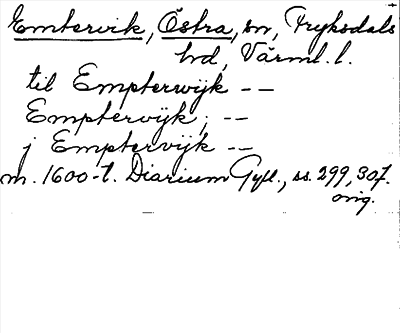 Emtervik, Östra, sn, Fryksdals
hd, Värml. l.
til Empterwijk --
Empterwijk; --
j Emptervijk --
m. 1600-t. Diarium Gyll., ss. 299, 307.
orig.